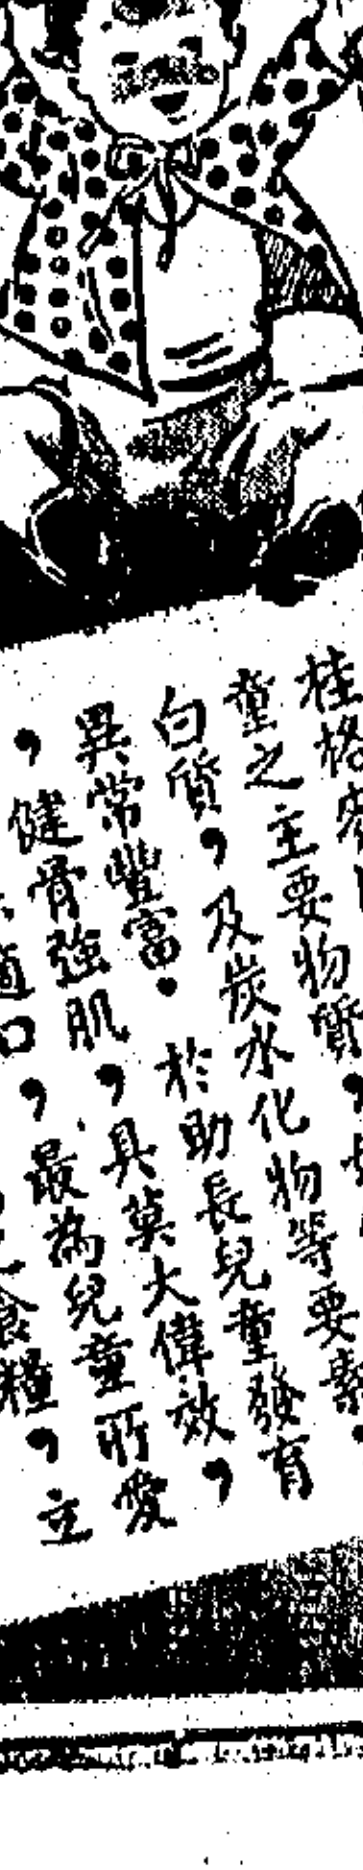 桂格
童之主要物質，
白質，及炭水化物等要素．
異常豐富．於助長兒童發育
，健骨強肌，具莫大偉效，
適口，最為兒童所愛
食糧，立